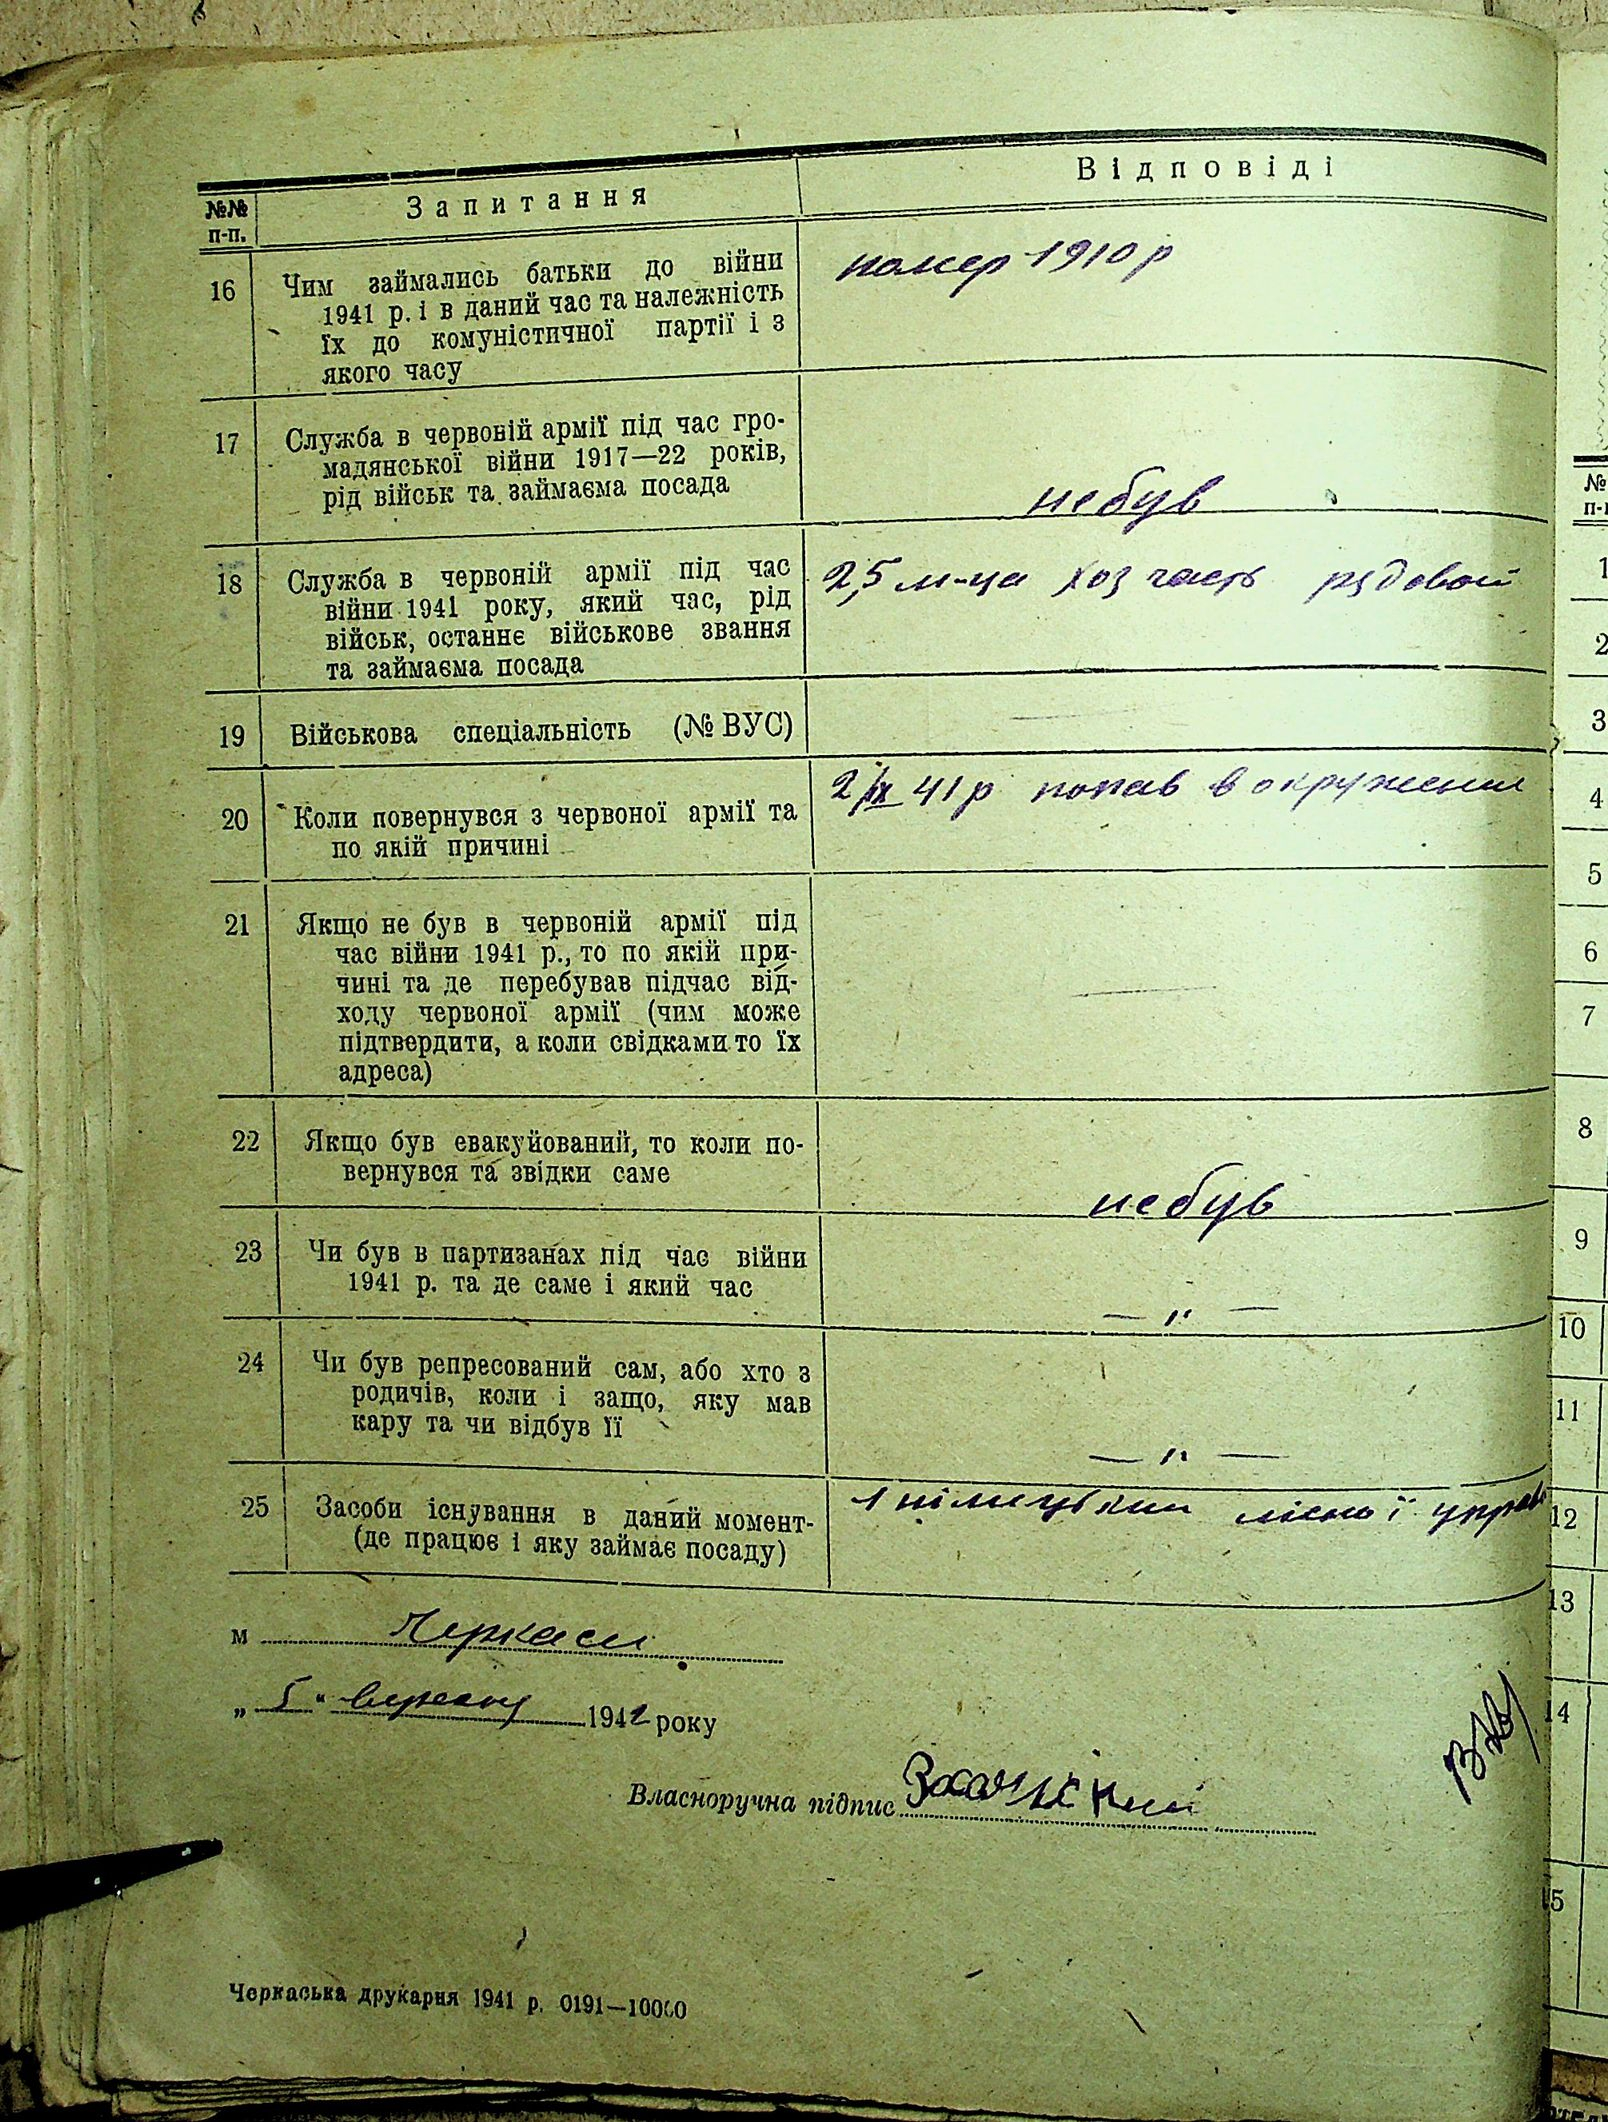 №№ п-п.
Запитання
Відповіді
16
Чим займались батьки до війни
1941 р. і в даний час та належність
їх до комуністичної партії і з
якого часу
помер 1910 р
17
Служба в червоній армії під час гро-
мадянської війни 1917—22 років,
рід військ та займаєма посада
не був
18
Служба в червоній армії під час
війни 1941 року, який час, рід
військ, останнє військове звання
та займаєма посада
2,5 м-ца хоз часть рядовой
19
Військова спеціальність (№ ВУС)
20
Коли повернувся з червоної армії та
по якій причині
2/ІХ 41 р попав в окружения
21
Якщо не був в червоній армії під
час війни 1941 р., то по якій при-
чині та де перебував підчас від-
ходу червоної армії (чим може
підтвердити, а коли свідками то їх
адреса)
22
Якщо був евакуйований, то коли по-
вернувся та звідки саме
не був
23
Чи був в партизанах під час війни
1941 р. та де саме і який час
— „ —
24
Чи був репресований сам, або хто з
родичів, коли і защо, яку мав
кару та чи відбув її
— „ —
25
Засоби існування в даний момент-
(де працює і яку займає посаду)
м Черкаси
„ 5 “ вересня 1942 року
Власноручна підпис
Черкаська друкарня 1941 р. 0191—10000
№
п-п
1
2
3
4
5
6
7
8
9
10
11
12
13
14
15